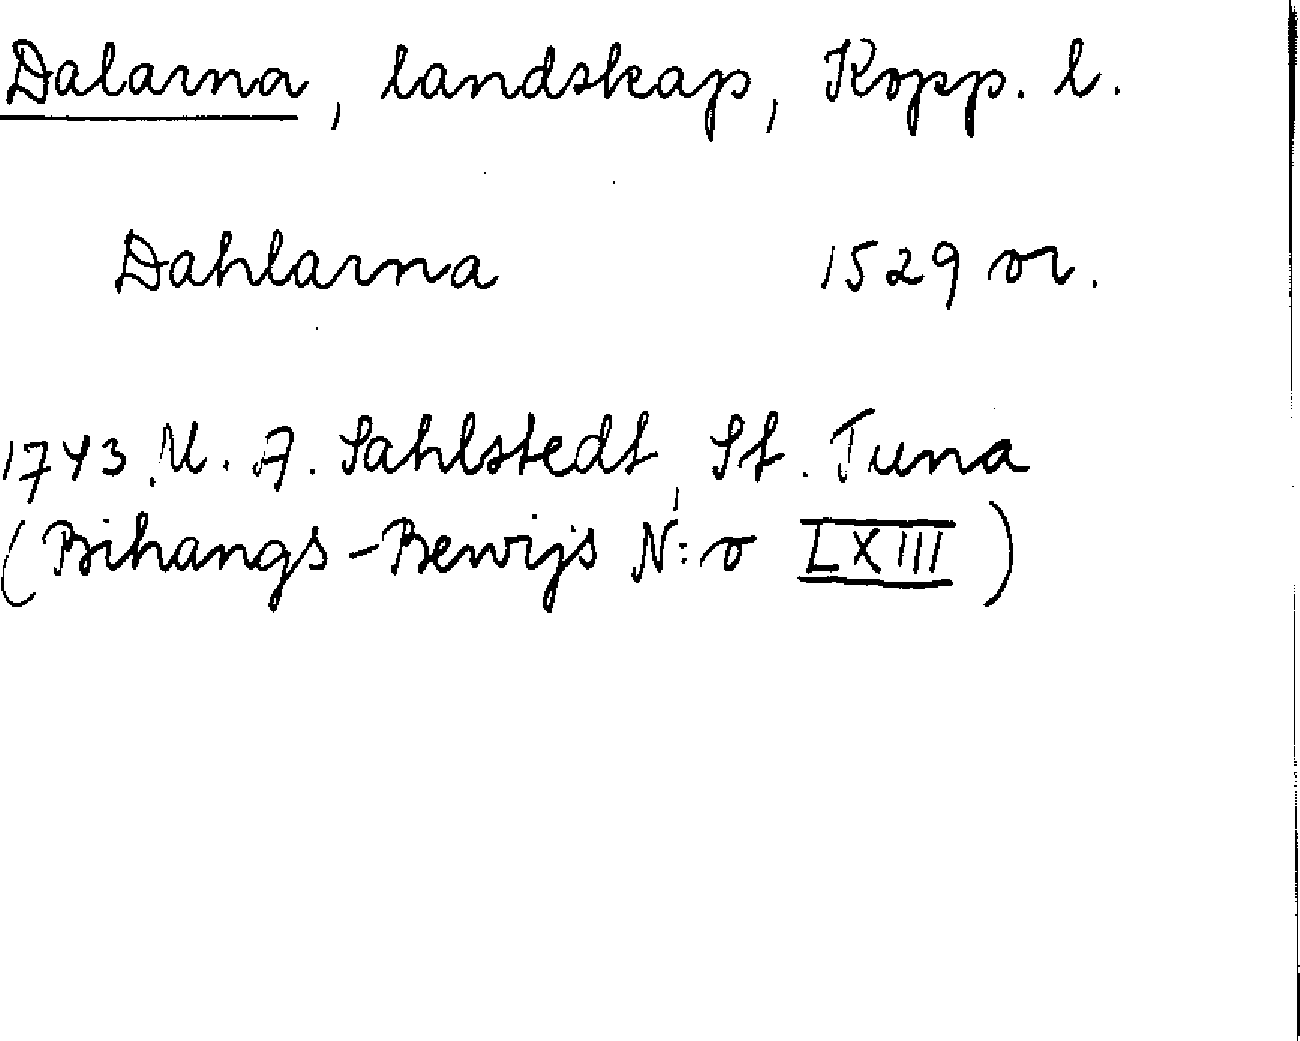 Dalarna, landskap, Kopp. l.
Dahlarna 1529 or.
1743. M. A. Sahlstedt, St. Tuna
(Bihangs-Bewijs N:o LXIII)